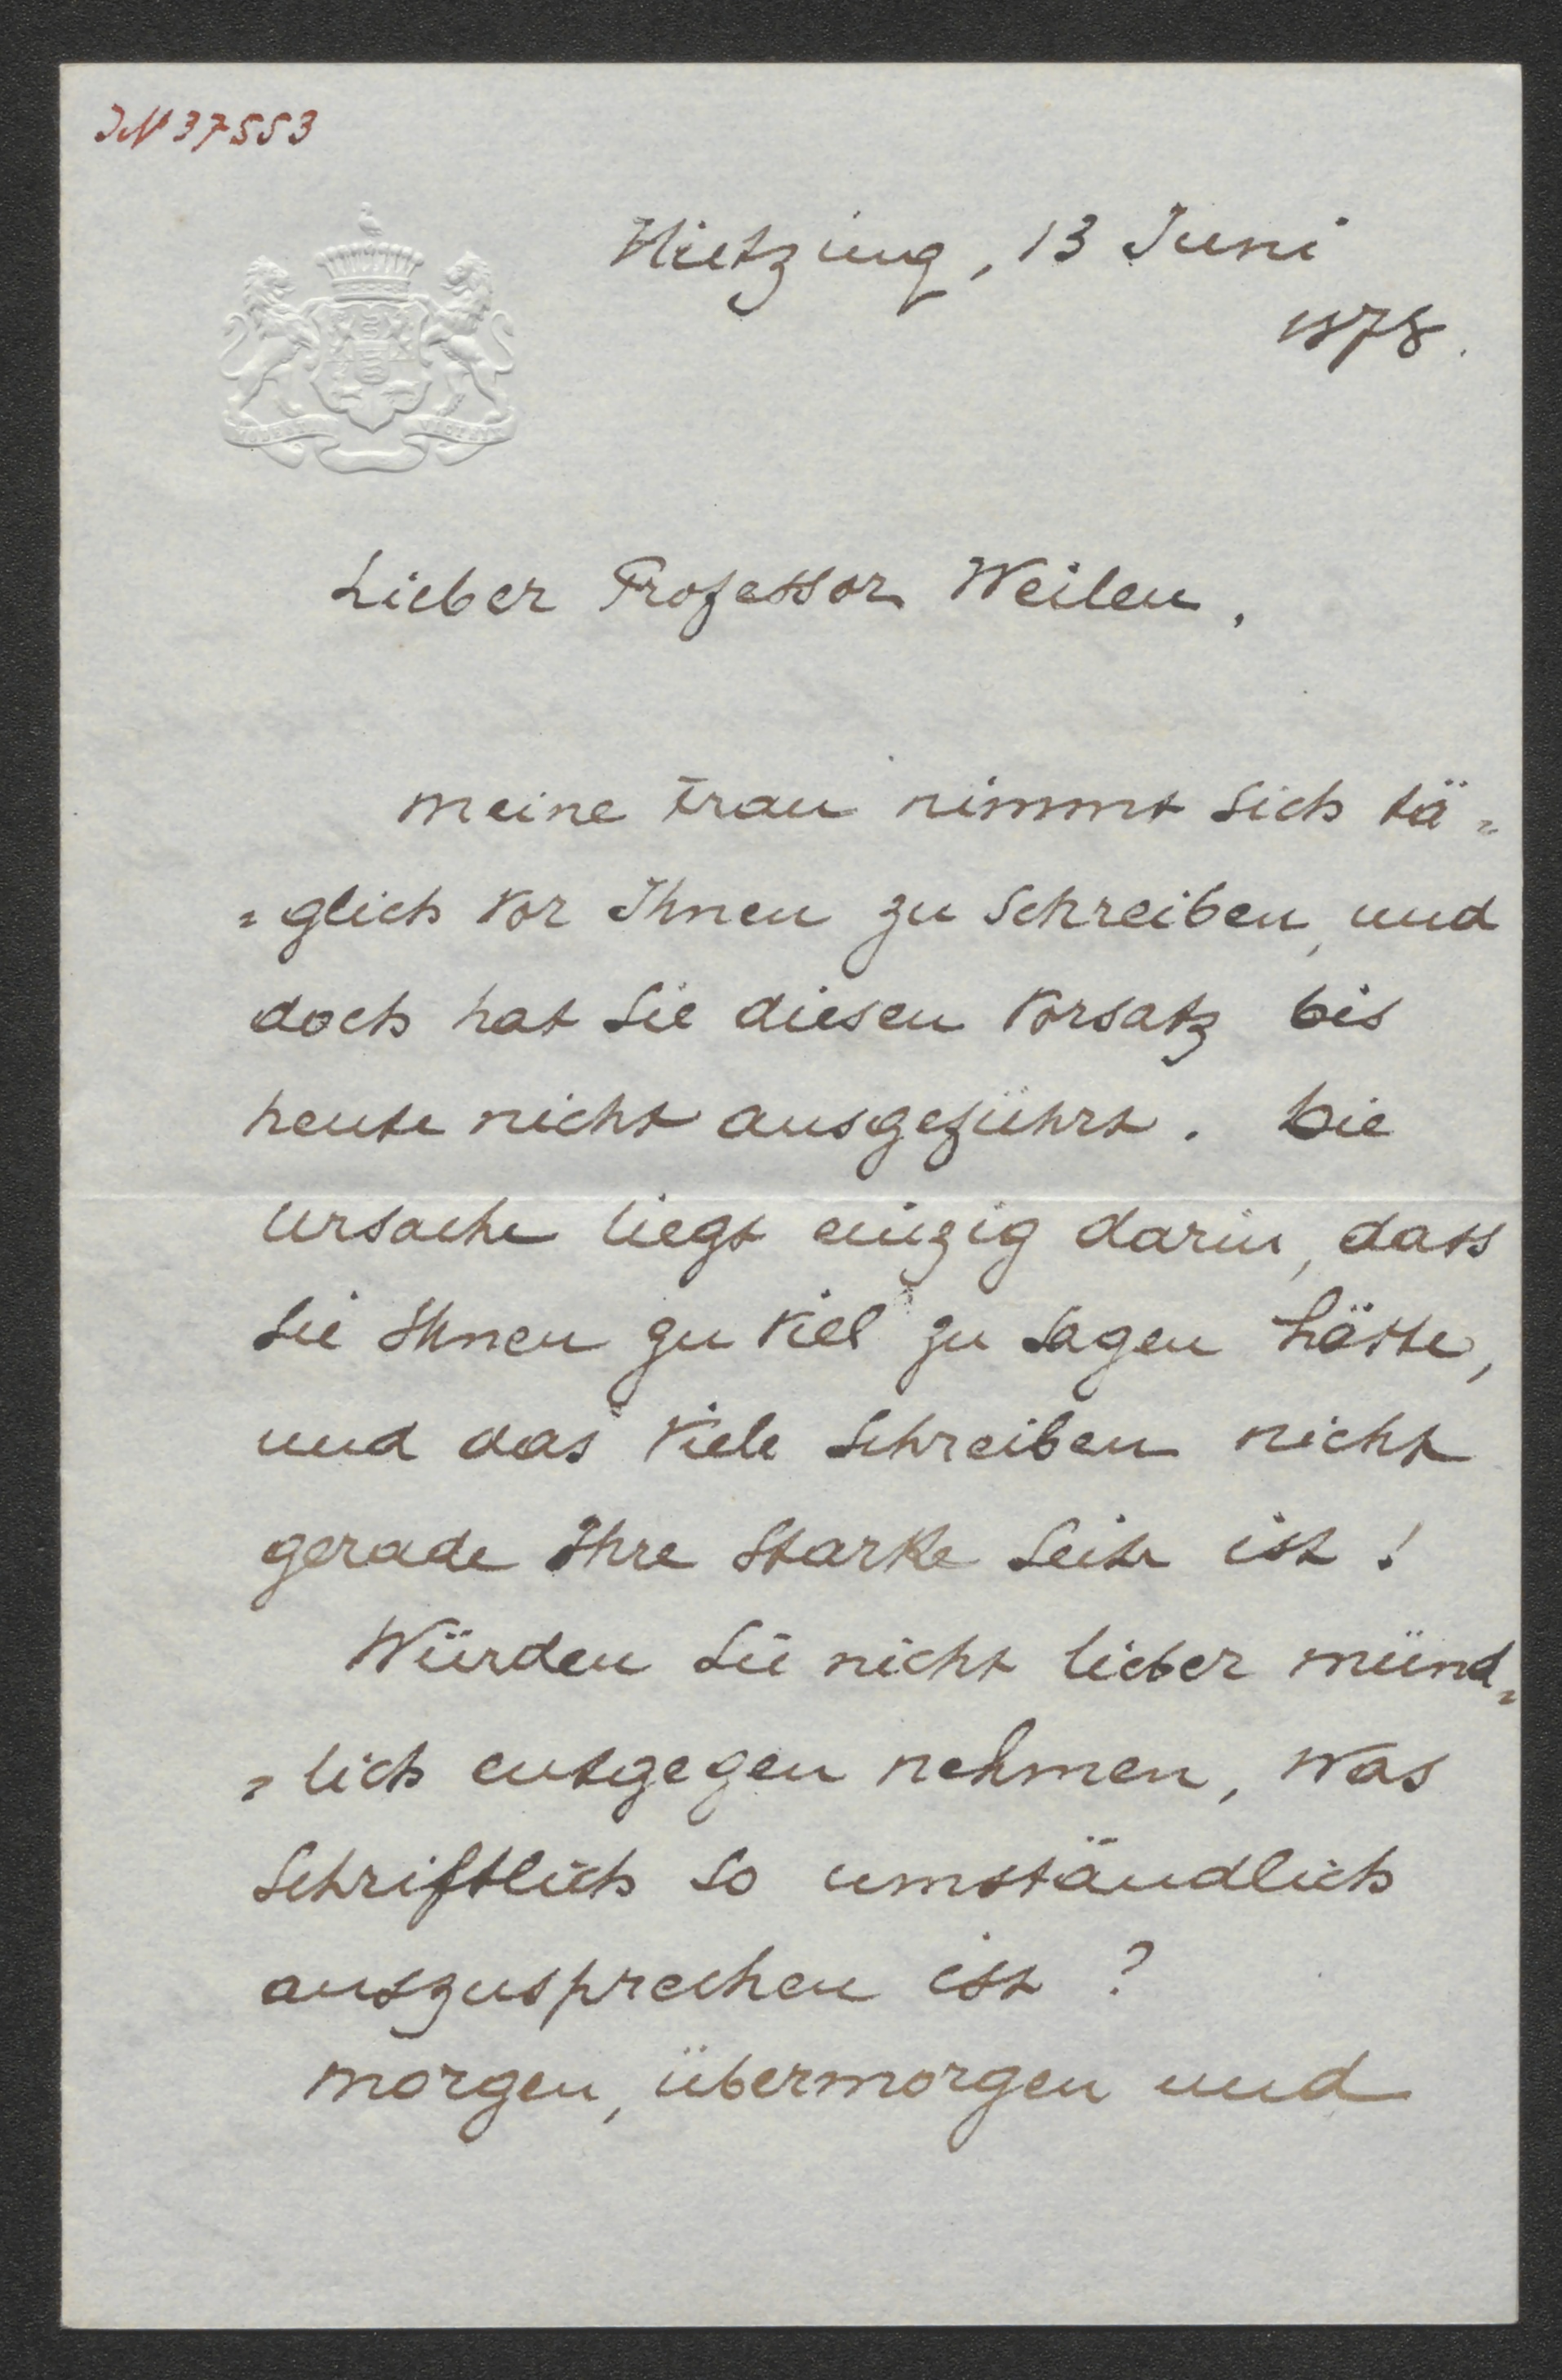 IN 37553
Hietzing, 13 Juni
1878.
Lieber Professor Weilen,
meine Frau nimmt sich tä=
=glich vor Ihnen zu schreiben, und
doch hat sie diesen Vorsatz bis
heute nicht ausgeführt. Die
Ursache liegt einzig darin, dass
sie Ihnen zu viel zu sagen hätte,
und das viele Schreiben nicht
gerade Ihre starke Seite ist!
Würden Sie nicht lieber münd=
=lich entgegen nehmen, was
schriftlich so umständlich
auszusprechen ist?
Morgen, übermorgen und